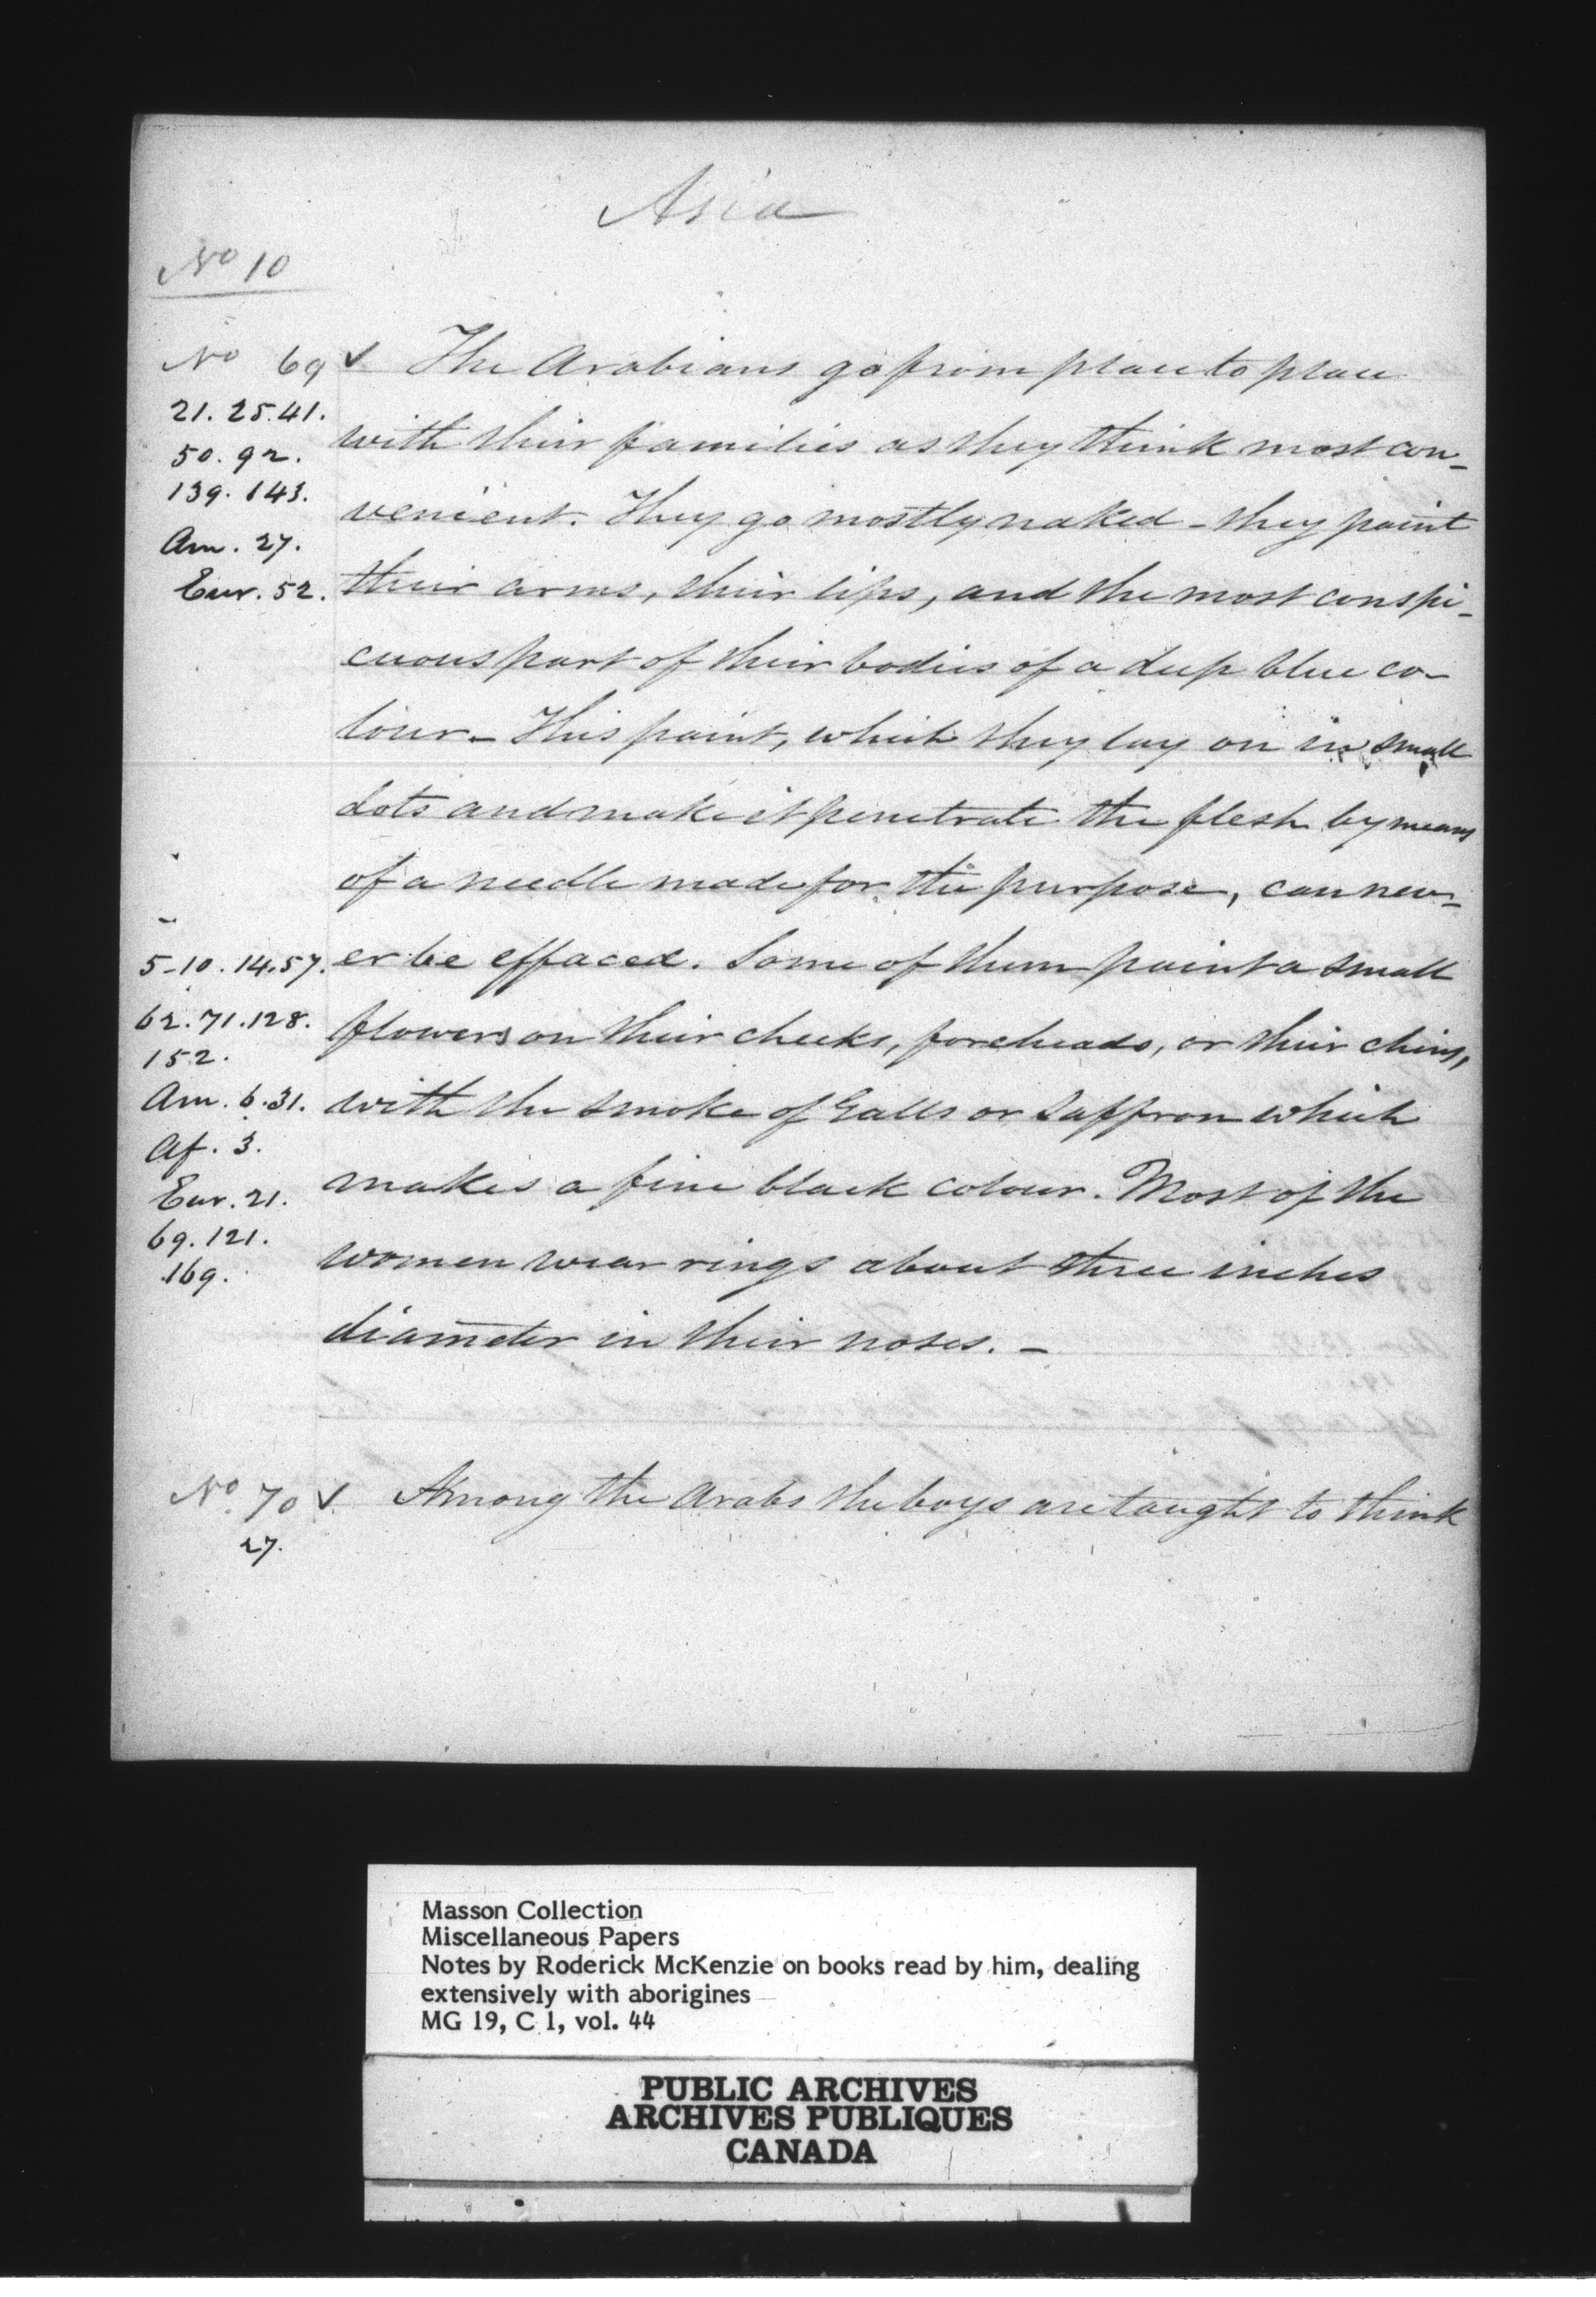 Asia
No 10
No 69 ✓ The Arabians go from place to place
21. 25. 41.
with their families as they think most con-
50. 92.
139. 143.
venient. They go mostly naked - they paint
Am. 27.
Eur. 52.
their arms, their lips, and the most conspi-
cuous part of their bodies of a deep blue co-
lour - This paint, which they lay on in small
dots and make it penetrate the flesh by means
of a needle made for the purpose, can nev-
5-10. 14. 57.
er be effaced. Some of them paint a small
62. 71. 128.
flowers on their cheeks, foreheads, or their chins,
152.
Am. 6. 31.
with the smoke of Galls or Saffron which
Af. 3.
makes a fine black colour. Most of the
Eur. 21.
69. 121.
women wear rings about three inches
169.
diameter in their noses. -
No. 70 ✓ Among the Arabs the boys are taught to think
27.
Masson Collection
Miscellaneous Papers
Notes by Roderick McKenzie on books read by him, dealing
extensively with aborigines
MG 19, C 1, vol. 44
PUBLIC ARCHIVES
ARCHIVES PUBLIQUES
CANADA